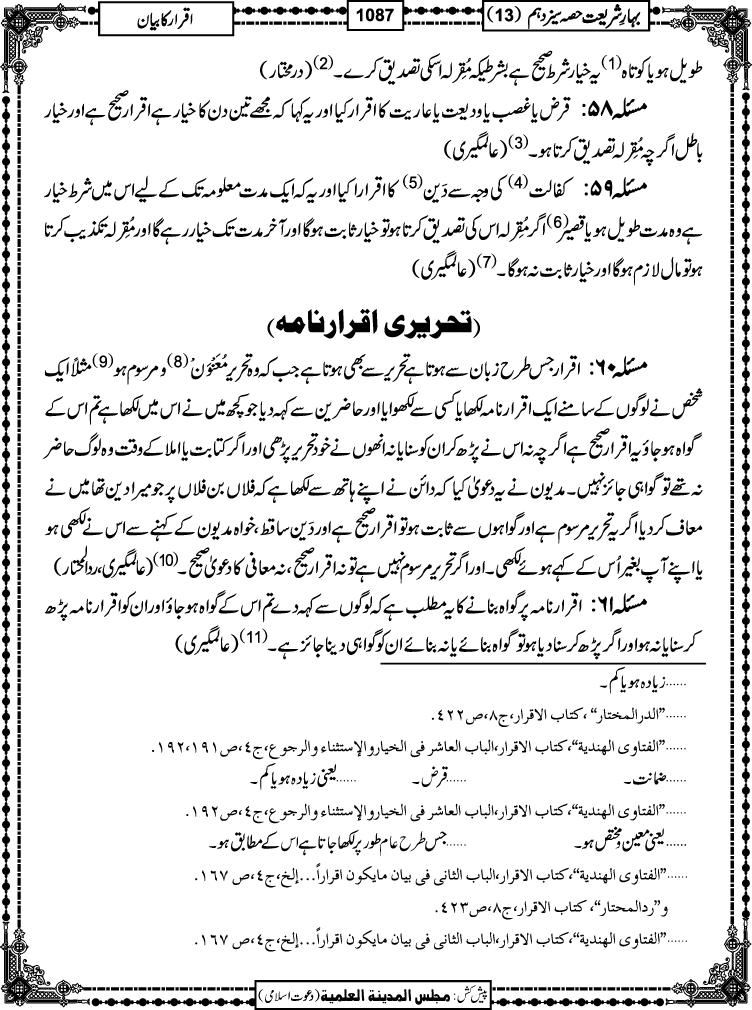 بہارِشریعت حصہ سیزدہم (13)
1087
اقرار کا بیان
طویل ہو یا کوتاہ(1) یہ خیار شرط صحیح ہے بشرطیکہ مُقِرلہ اسکی تصدیق کرے۔(2) (درمختار)
مسئلہ ۵۸: قرض یا غصب یا ودیعت یا عاریت کا اقرار کیا اور یہ کہا کہ مجھے تین دن کا خیار ہے اقرار صحیح ہے اور خیار
باطل اگرچہ مُقِرلہ تصدیق کرتا ہو۔(3) (عالمگیری)
مسئلہ ۵۹: کفالت(4) کی وجہ سے دَین(5) کا اقرار کیا اور یہ کہ ایک مدت معلومہ تک کے لیے اس میں شرط خیار
ہے وہ مدت طویل ہو یا قصیر(6) اگر مُقِرلہ اس کی تصدیق کرتا ہو تو خیار ثابت ہوگا اور آخر مدت تک خیار رہے گا اور مُقِرلہ تکذیب کرتا
ہو تو مال لازم ہوگا اور خیار ثابت نہ ہوگا۔(7) (عالمگیری)
(تحریری اقرارنامہ)
مسئلہ ۶۰: اقرار جس طرح زبان سے ہوتا ہے تحریر سے بھی ہوتا ہے جب کہ وہ تحریر مُعَنْوَن(8) و مرسوم ہو(9) مثلاً ایک
شخص نے لوگوں کے سامنے ایک اقرارنامہ لکھا یا کسی سے لکھوایا اور حاضرین سے کہہ دیا جو کچھ میں نے اس میں لکھا ہے تم اس کے
گواہ ہو جاؤ یہ اقرار صحیح ہے اگرچہ نہ اس نے پڑھ کر ان کو سنایا نہ انھوں نے خود تحریر پڑھی اور اگر کتابت یا املا کے وقت وہ لوگ حاضر
نہ تھے تو گواہی جائز نہیں۔ مدیون نے یہ دعویٰ کیا کہ دائن نے اپنے ہاتھ سے لکھا ہے کہ فلاں بن فلاں پر جو میرا دین تھا میں نے
معاف کردیا اگر یہ تحریر مرسوم ہے اور گواہوں سے ثابت ہو تو اقرار صحیح ہے اور دَین ساقط، خواہ مدیون کے کہنے سے اس نے لکھی ہو
یا اپنے آپ بغیر اُس کے کہے ہوئے لکھی۔ اور اگر تحریر مرسوم نہیں ہے تو نہ اقرار صحیح، نہ معافی کا دعویٰ صحیح۔(10) (عالمگیری، ردالمحتار)
مسئلہ ۶۱: اقرارنامہ پر گواہ بنانے کا یہ مطلب ہے کہ لوگوں سے کہہ دے تم اس کے گواہ ہو جاؤ اور ان کو اقرارنامہ پڑھ
کر سنایا نہ ہو اور اگر پڑھ کر سنا دیا ہو تو گواہ بنائے یا نہ بنائے ان کو گواہی دینا جائز ہے۔(11) (عالمگیری)
......زیادہ ہو یا کم۔
......”الدرالمختار“، کتاب الاقرار، ج۸، ص۴۲۲.
......”الفتاوی الھندیة“، کتاب الاقرار، الباب العاشر فی الخیار والإستثناء والرجوع، ج٤، ص۱۹۱،۱۹۲.
......ضمانت۔ ......قرض۔ ......یعنی زیادہ ہو یا کم۔
......”الفتاوی الھندیة“، کتاب الاقرار، الباب العاشر فی الخیار والإستثناء والرجوع، ج٤، ص۱۹۲.
......یعنی معین و مختص ہو۔ ......جس طرح عام طور پر لکھا جاتا ہے اس کے مطابق ہو۔
......”الفتاوی الھندیة“، کتاب الاقرار، الباب الثانی فی بیان مایکون اقراراً...إلخ، ج٤، ص۱۶۷.
و”ردالمحتار“، کتاب الاقرار، ج۸، ص۴۲۳.
......”الفتاوی الھندیة“، کتاب الاقرار، الباب الثانی فی بیان مایکون اقراراً...إلخ، ج٤، ص۱۶۷.
پیش کش: مجلس المدینة العلمیة (دعوت اسلامی)